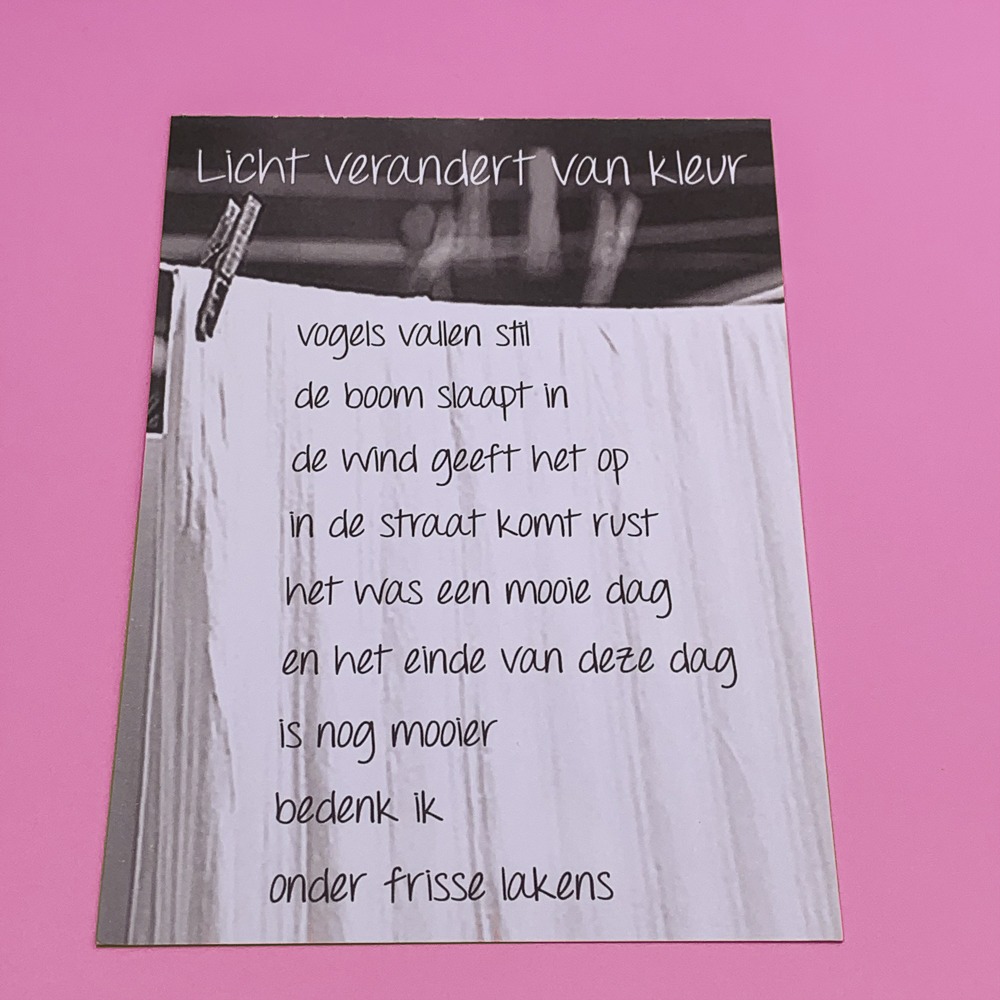 Licht verandert van kleur
vogels vallen stil
de boom slaapt in
de wind geeft het op
in de straat komt rust
het was een mooie dag
en het einde van deze dag
is nog mooier
bedenk ik
onder frisse lakens